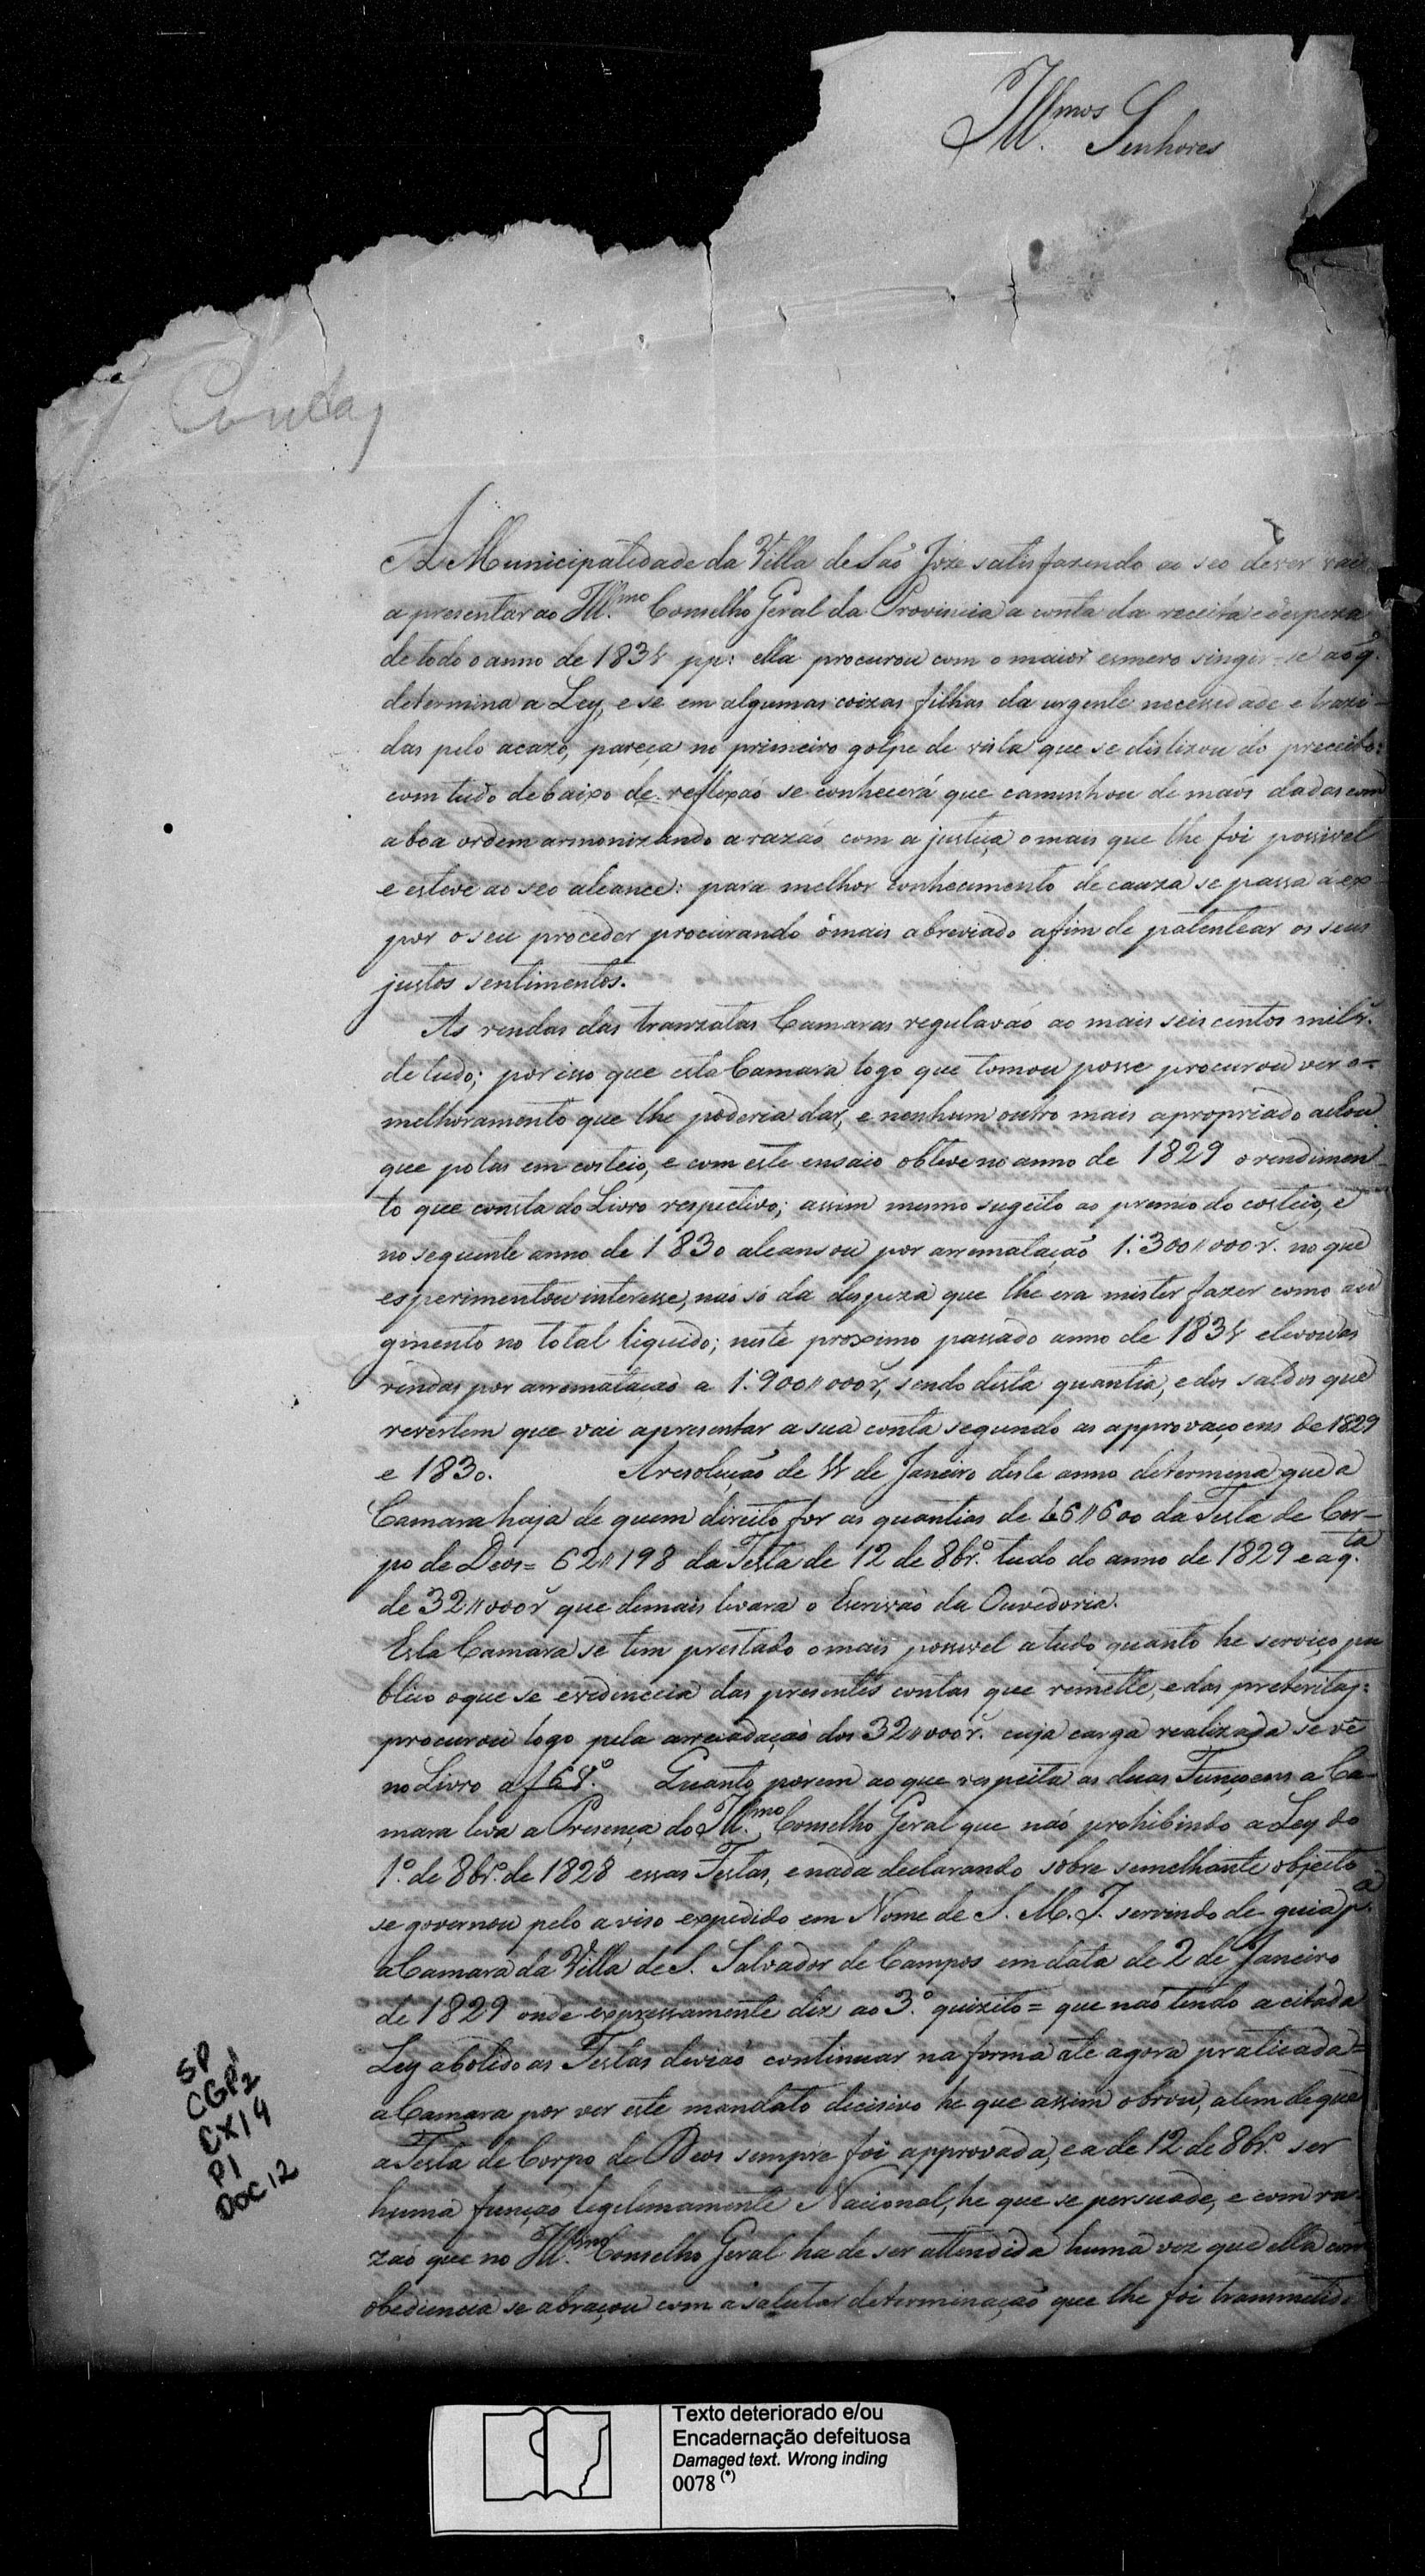 Ill.mos Senhores
Contas
A Municipalidade da Villa de São Joze satisfazendo ao seo dever vai
apresentar ao Ill.mo Conselho Geral da Provincia a conta da receita e despeza
de todo o anno de 1831 pp: ella procurou com o maior esmero singir-se ao q.
determina a Ley, e se em algumas coizas filhas da urgente necessidade e trazi-
das pelo acazo, pareça no primeiro golpe de vista que se deslizou do preceito:
com tudo debaixo de reflexaõ se conhecerá que caminhou de maõs dadas com
a boa ordem armonizando a razaõ com a justiça o mais que lhe foi possivel
e esteve ao seo alcance: para melhor conhecimento de cauza se passa á ex-
por o seu proceder procurando o mais abreviado afim de patentear os seus
justos sentimentos.
As rendas das tranzatas Camaras regulavaõ ao mais seis centos mil r.
de tudo; por isso que esta Camara logo que tomou posse procurou ver o=
melhoramento que lhe poderia dar, e nenhum outro mais apropriado achou
que polas em costeio, e com este ensaio obteve no anno de 1829 o rendimen-
to que consta do Livro respectivo; assim mesmo sugeito ao premio do costeio, e
no seguente anno de 1830 alcansou por arrematação 1:300//000 r. no que
esperimentou interesse, naõ só da despeza que lhe era mister fazer como
gmento no total liquido; neste proximo passado anno de 1831 elevou as
rendas por arremataçaõ a 1:900//000 r, sendo desta quantia, e dos saldos que
revertem que vai apresentar a sua conta segundo as approvaçoens de 1829
e 1830. A resoluçaõ de 11 de Janeiro deste anno determina que a
Camara haja de quem direito for as quantias de 46//600 da Festa de Cor-
po de Deos= 62//198 da Festa de 12 de 8br.º tudo do anno de 1829 e a q.ta
de 32//000 r que demais levara o Escrivaõ da Ouvedoria.
Esta Camara se tem prestado o mais possivel a tudo quanto he serviço pu
blico o que se evidinceia das presentes contas que remette, e das preteritas:
procurou logo pela arrecadaçaõ dos 32//000 r. cuja carga realizada se vê
no Livro a f 68. Quanto porem ao que respeita as duas Funçoens a Ca-
mara leva a Presença do Ill.mo Conselho Geral que naõ prohibindo a Ley do
1.º de 8br.º de 1828 essas Festas, e nada declarando sobre semelhante objecto
se governou pelo aviso expedido em Nome de S. M. I. servindo de guia p.a
a Camara da Villa de S. Salvador de Campos em data de 2 de Janeiro
de 1829 onde expressamente diz ao 3.º quizito = que naõ tendo a citada
Ley abolido as Festas deviaõ continuar na forma ate agora praticada=
a Camara por ver este mandato decisivo he que assim obrou, alem de que
a Festa de Corpo de Deos sempre foi approvada, e a de 12 de 8br.º ser
huma funçaõ legitimamente Nacional, he que se persuade, e com ra-
zaõ que no Ill.mo Conselho Geral ha de ser attendida huma vez que ella com
obediencia se abraçou com a salutar determinaçaõ que lhe foi transmetida
SP
CGP1
CX14
P1
DOC 12
Texto deteriorado e/ou
Encadernação defeituosa
Damaged text. Wrong inding
0078 (*)